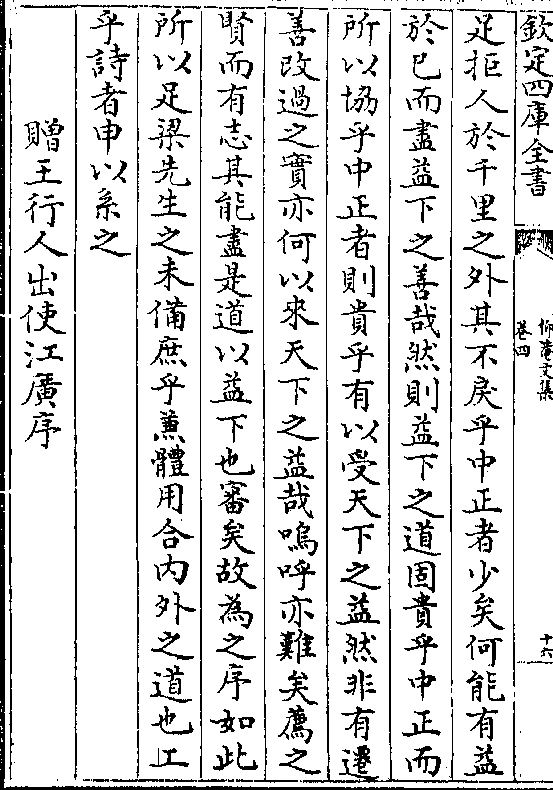 欽定四庫全書
仰菴文集
卷四
十六
足拒人於千里之外其不戾乎中正者少矣何能有益
於已而盡益下之善哉然則益下之道固貴乎中正而
所以協乎中正者則貴乎有以受天下之益然非有遷
善改過之實亦何以來天下之益哉嗚呼亦難矣薦之
賢而有志其能盡是道以益下也審矣故為之序如此
所以足梁先生之未備庶乎兼體用合內外之道也工
乎詩者申以系之
贈王行人出使江廣序